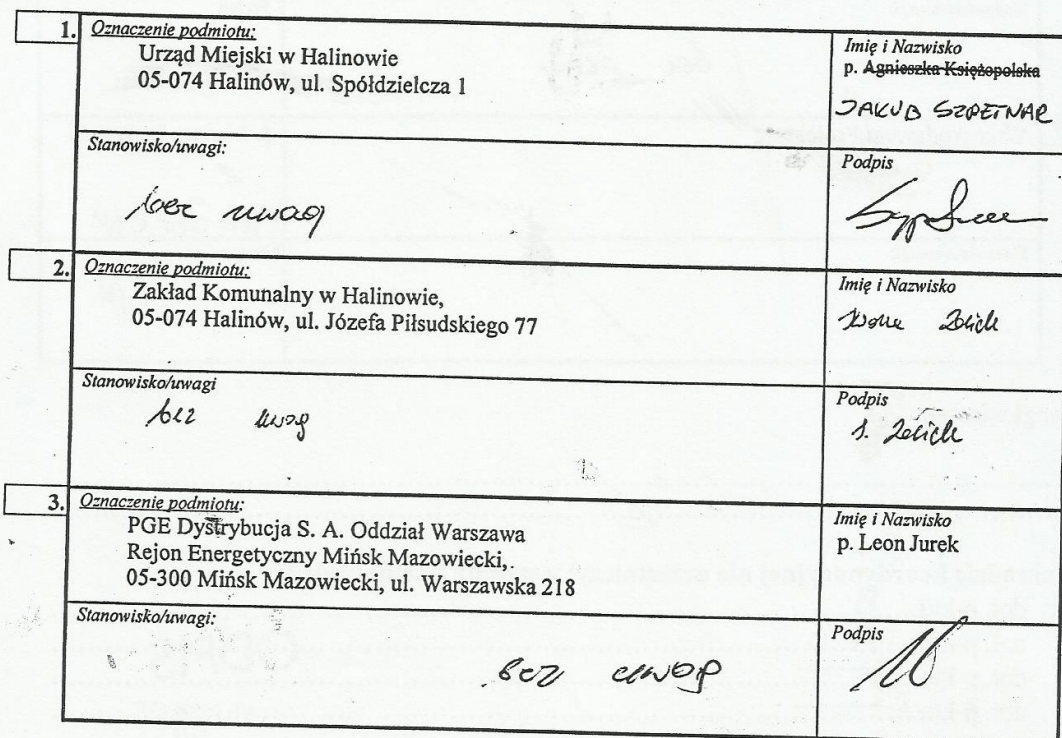 1. Oznaczenie podmiotu:
Urząd Miejski w Halinowie
05-074 Halinów, ul. Spółdzielcza 1
Imię i Nazwisko
p. Agnieszka Księżopolska
JAKUB SZPETNAR
Stanowisko/uwagi:
bez uwag
Podpis
2. Oznaczenie podmiotu:
Zakład Komunalny w Halinowie,
05-074 Halinów, ul. Józefa Piłsudskiego 77
Imię i Nazwisko
Stanowisko/uwagi
bez uwag
Podpis
3. Oznaczenie podmiotu:
PGE Dystrybucja S. A. Oddział Warszawa
Rejon Energetyczny Mińsk Mazowiecki,
05-300 Mińsk Mazowiecki, ul. Warszawska 218
Imię i Nazwisko
p. Leon Jurek
Stanowisko/uwagi:
bez uwag
Podpis